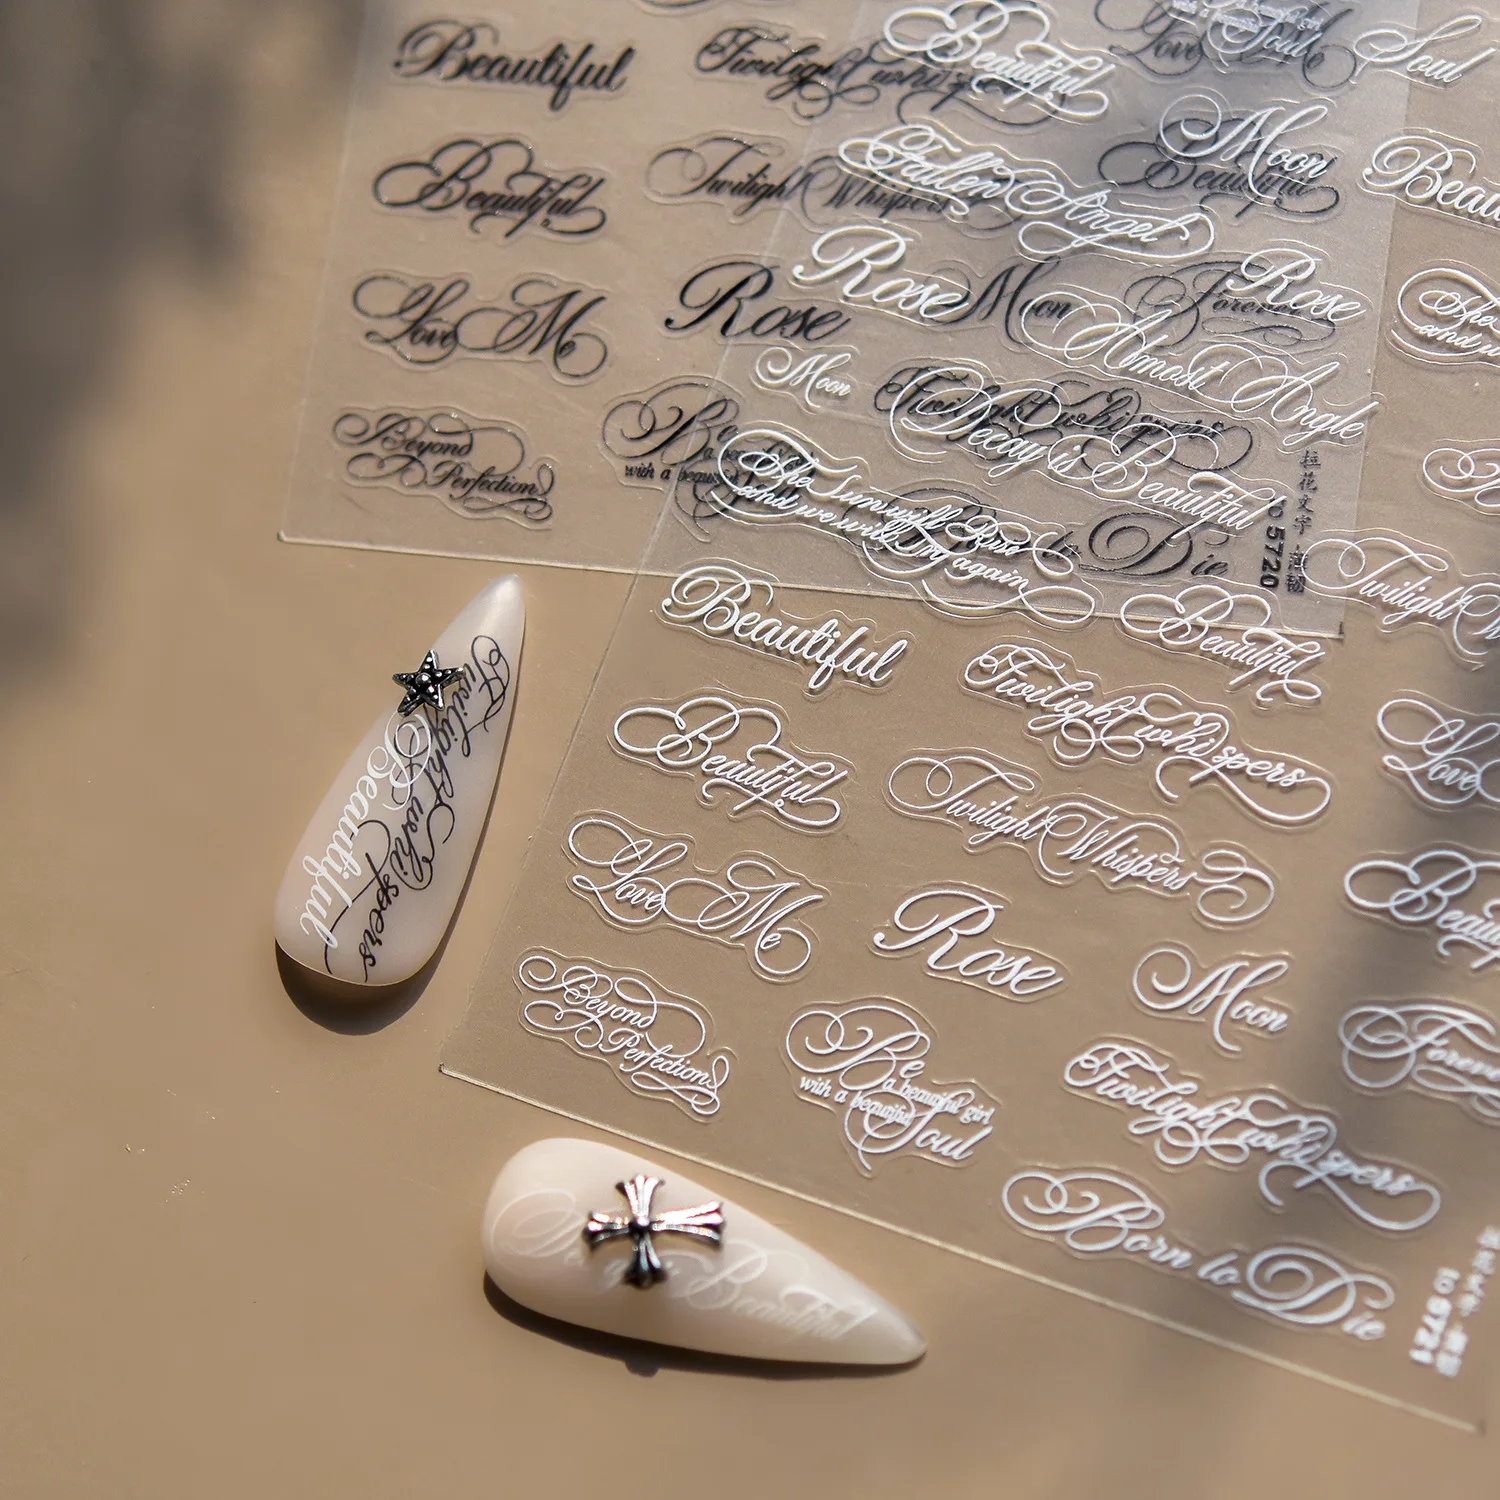 Beautiful
Twilight whispers
Beautiful
Twilight Whispers
Beautiful
Love Me
Rose
Moon
Forever
Beyond
Perfection
Be
with a beautiful
Twilight whispers
to Die
to 5720
Beautiful
Soul
Moon
Fallen Angel
Beautiful
Rose
Rose
Almost Angle
Moon
Decay is Beautiful
The Sun will Rise
and we will try again
Beautiful
Twilight
Beautiful
Twilight whispers
Love
Beautiful
Twilight Whispers
Beautiful
Love Me
Rose
Moon
Forever
Beyond
Perfection
Be
a beautiful girl
with a beautiful
Soul
Twilight whispers
Born to Die
to 5721
Twilight whispers
Beautiful
Beautiful